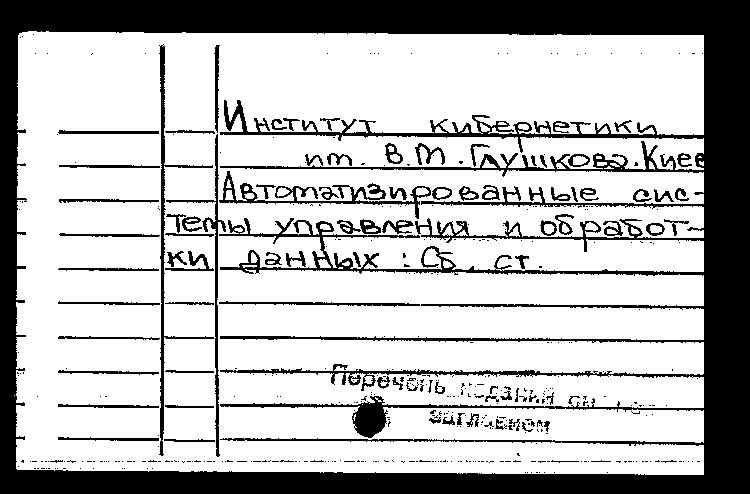 Институт кибернетики
им. В.М. Глушкова. Киев
Автоматизированные сис-
темы управления и обработ-
ки данных : Сб. ст.
Перечень изданий см. под
заглавием